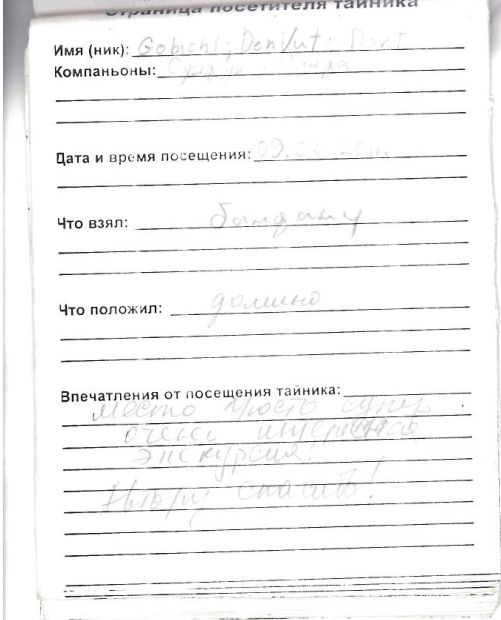 Страница посетителя тайника
Имя (ник): Gobichi; DenVut;
Компаньоны:
Дата и время посещения: 09.08
Что взял: бандану
Что положил: домино
Впечатления от посещения тайника:
место просто супер
очень интересная
экскурсия!
Автору спасибо!